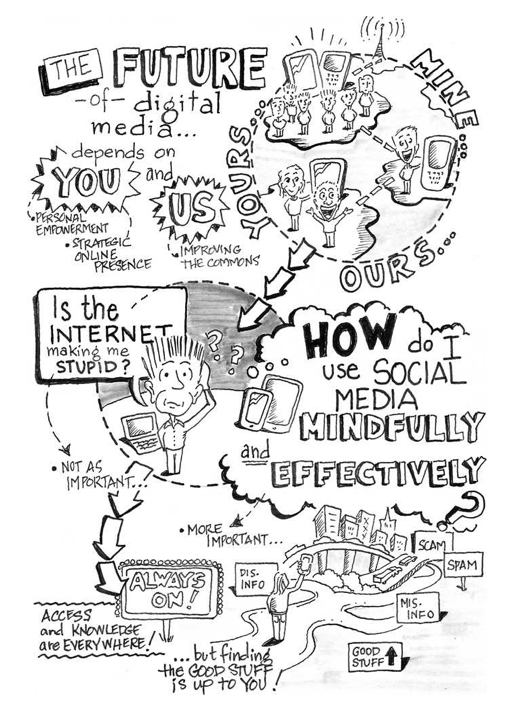 THE FUTURE
-of- digital
media...
depends on
YOU and
US
• PERSONAL
EMPOWERMENT
• STRATEGIC
ONLINE
PRESENCE
• IMPROVING
THE COMMONS
YOURS...
MINE...
OURS...
Is the
INTERNET
making me
STUPID?
? ? ?
HOW do I
use SOCIAL
MEDIA
MINDFULLY
and
EFFECTIVELY
?
• NOT AS
IMPORTANT...
• MORE
IMPORTANT...
ALWAYS
ON!
ACCESS
and KNOWLEDGE
are EVERYWHERE!
DIS.
INFO
SCAM
SPAM
MIS.
INFO
GOOD
STUFF
...but finding
the GOOD STUFF
is UP TO YOU!